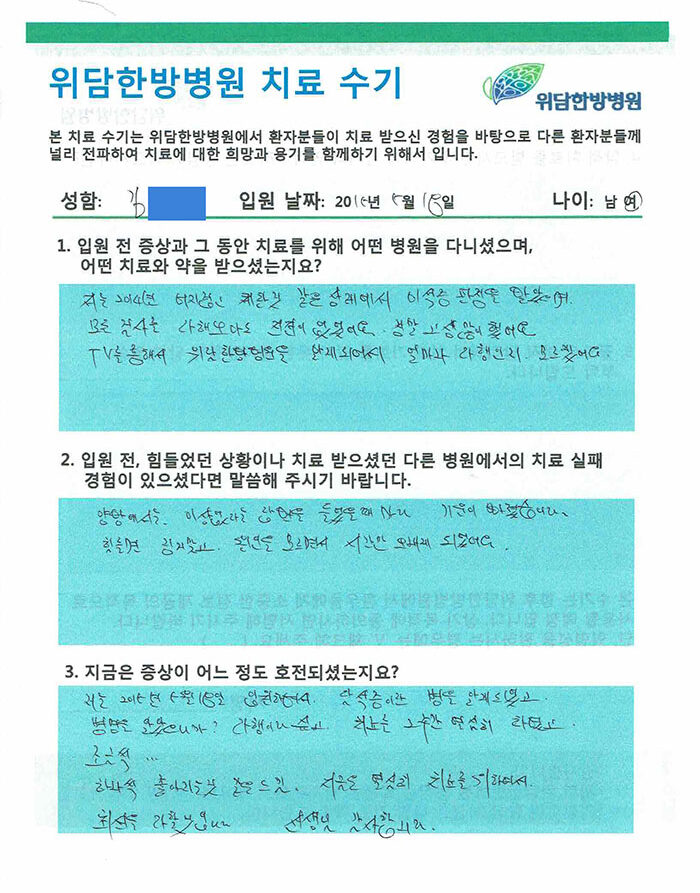 위담한방병원 치료 수기
위담한방병원
본 치료 수기는 위담한방병원에서 환자분들이 치료 받으신 경험을 바탕으로 다른 환자분들께
널리 전파하여 치료에 대한 희망과 용기를 함께하기 위해서 입니다.
성함: 김 입원 날짜: 201 년 월 일 나이: 남 여
1. 입원 전 증상과 그 동안 치료를 위해 어떤 병원을 다니셨으며,
어떤 치료와 약을 받으셨는지요?
저는 2014년 같은 이석증 판정을 받았으며.
모든 검사를 다해보아도 없었어요. 정말 고생많이 했어요
TV를 통해서 위담한방병원을 알게되어서 얼마나 다행인지 모르겠어요
2. 입원 전, 힘들었던 상황이나 치료 받으셨던 다른 병원에서의 치료 실패
경험이 있으셨다면 말씀해 주시기 바랍니다.
양방에서는. 이상없다는 들었을때 기운이
원인을 모르면서 시간만 오래 되었어요.
3. 지금은 증상이 어느 정도 호전되셨는지요?
저는 입원하여서. 담적증이란 병을 알게되었고.
병명을 알았으니까? 다행이다 싶고. 치료를 열심히 하였고.
조금씩 ...
하나씩 좋아지는것 같은 느낌. 지금은 열심히 치료를
최선을 다할것입니다 선생님 감사합니다.